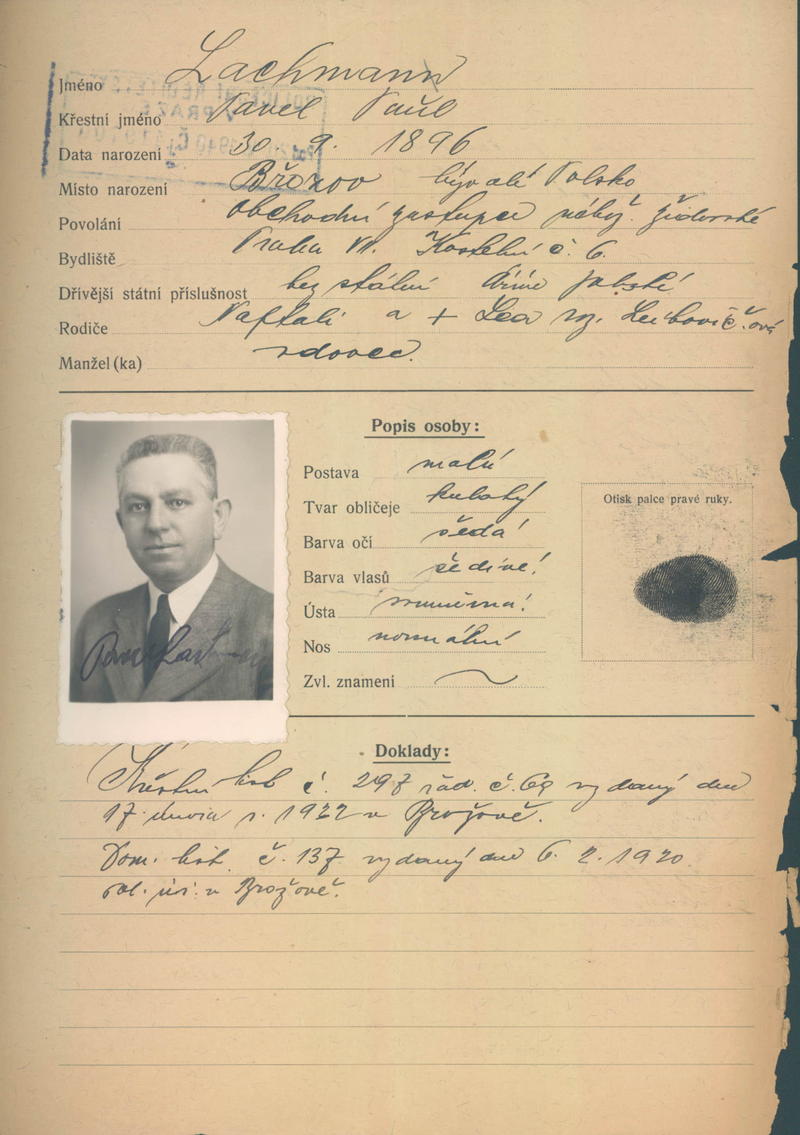 Jméno Lachmann
Křestní jméno Pavel Paul
Data narození 30. 9. 1896
Místo narození Březov býv alé Polsko
Povolání obchodní zástupce nábož. židovské
Bydliště Praha VII. Kostelní č. 6.
Dřívější státní příslušnost bez státní dříve polské
Rodiče Naftali a + Lea roz. Leibovičová
Manžel (ka) vdovec.
Popis osoby:
Postava malá
Tvar obličeje kulatý
Barva očí šedá
Barva vlasů šedivé
Ústa souměrná
Nos normální
Zvl. znamení
Otisk palce pravé ruky.
Doklady:
Křestní list č. 297 řad. č. 69 vydaný dne
17. února r. 1922 v Brožově.
Dom. list č. 137 vydaný dne 6. 2. 1920
pol. úř. v Brožově.